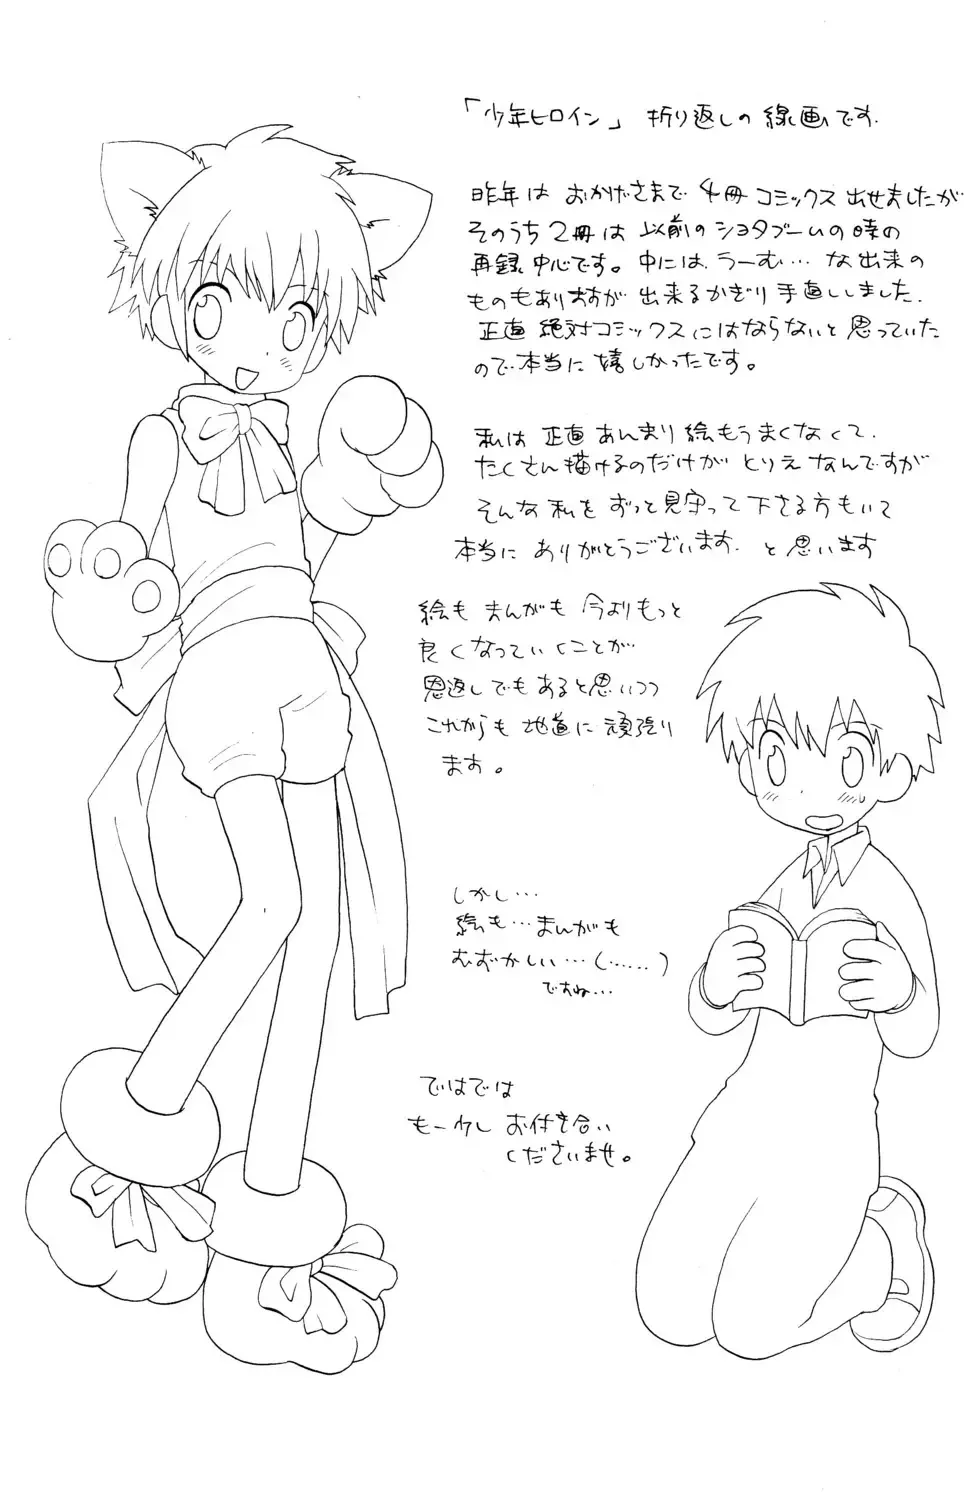 「少年ヒロイン」 折り返しの線画です.
昨年は おかげさまで 4冊 コミックス 出せましたが
そのうち 2冊は 以前の ショタブームの時の
再録中心です。中には、うーむ… な出来の
ものもありますが 出来るかぎり 手直ししました.
正直 絶対コミックスにはならないと思っていた
ので本当に 嬉しかったです。
私は 正直 あんまり絵もうまくなくて.
たくさん描けるのだけが とりえ なんですが
そんな 私を ずっと見守って 下さる方もいて
本当に ありがとうございます. と思います
絵も まんがも 今よりもっと
良くなっていくことが
恩返しでもあると思いつつ
これからも 地道に 頑張り
ます。
しかし…
絵も…まんがも
むずかしい…(……)
ですね…
ではでは
もー少し お付き合い
くださいませ。